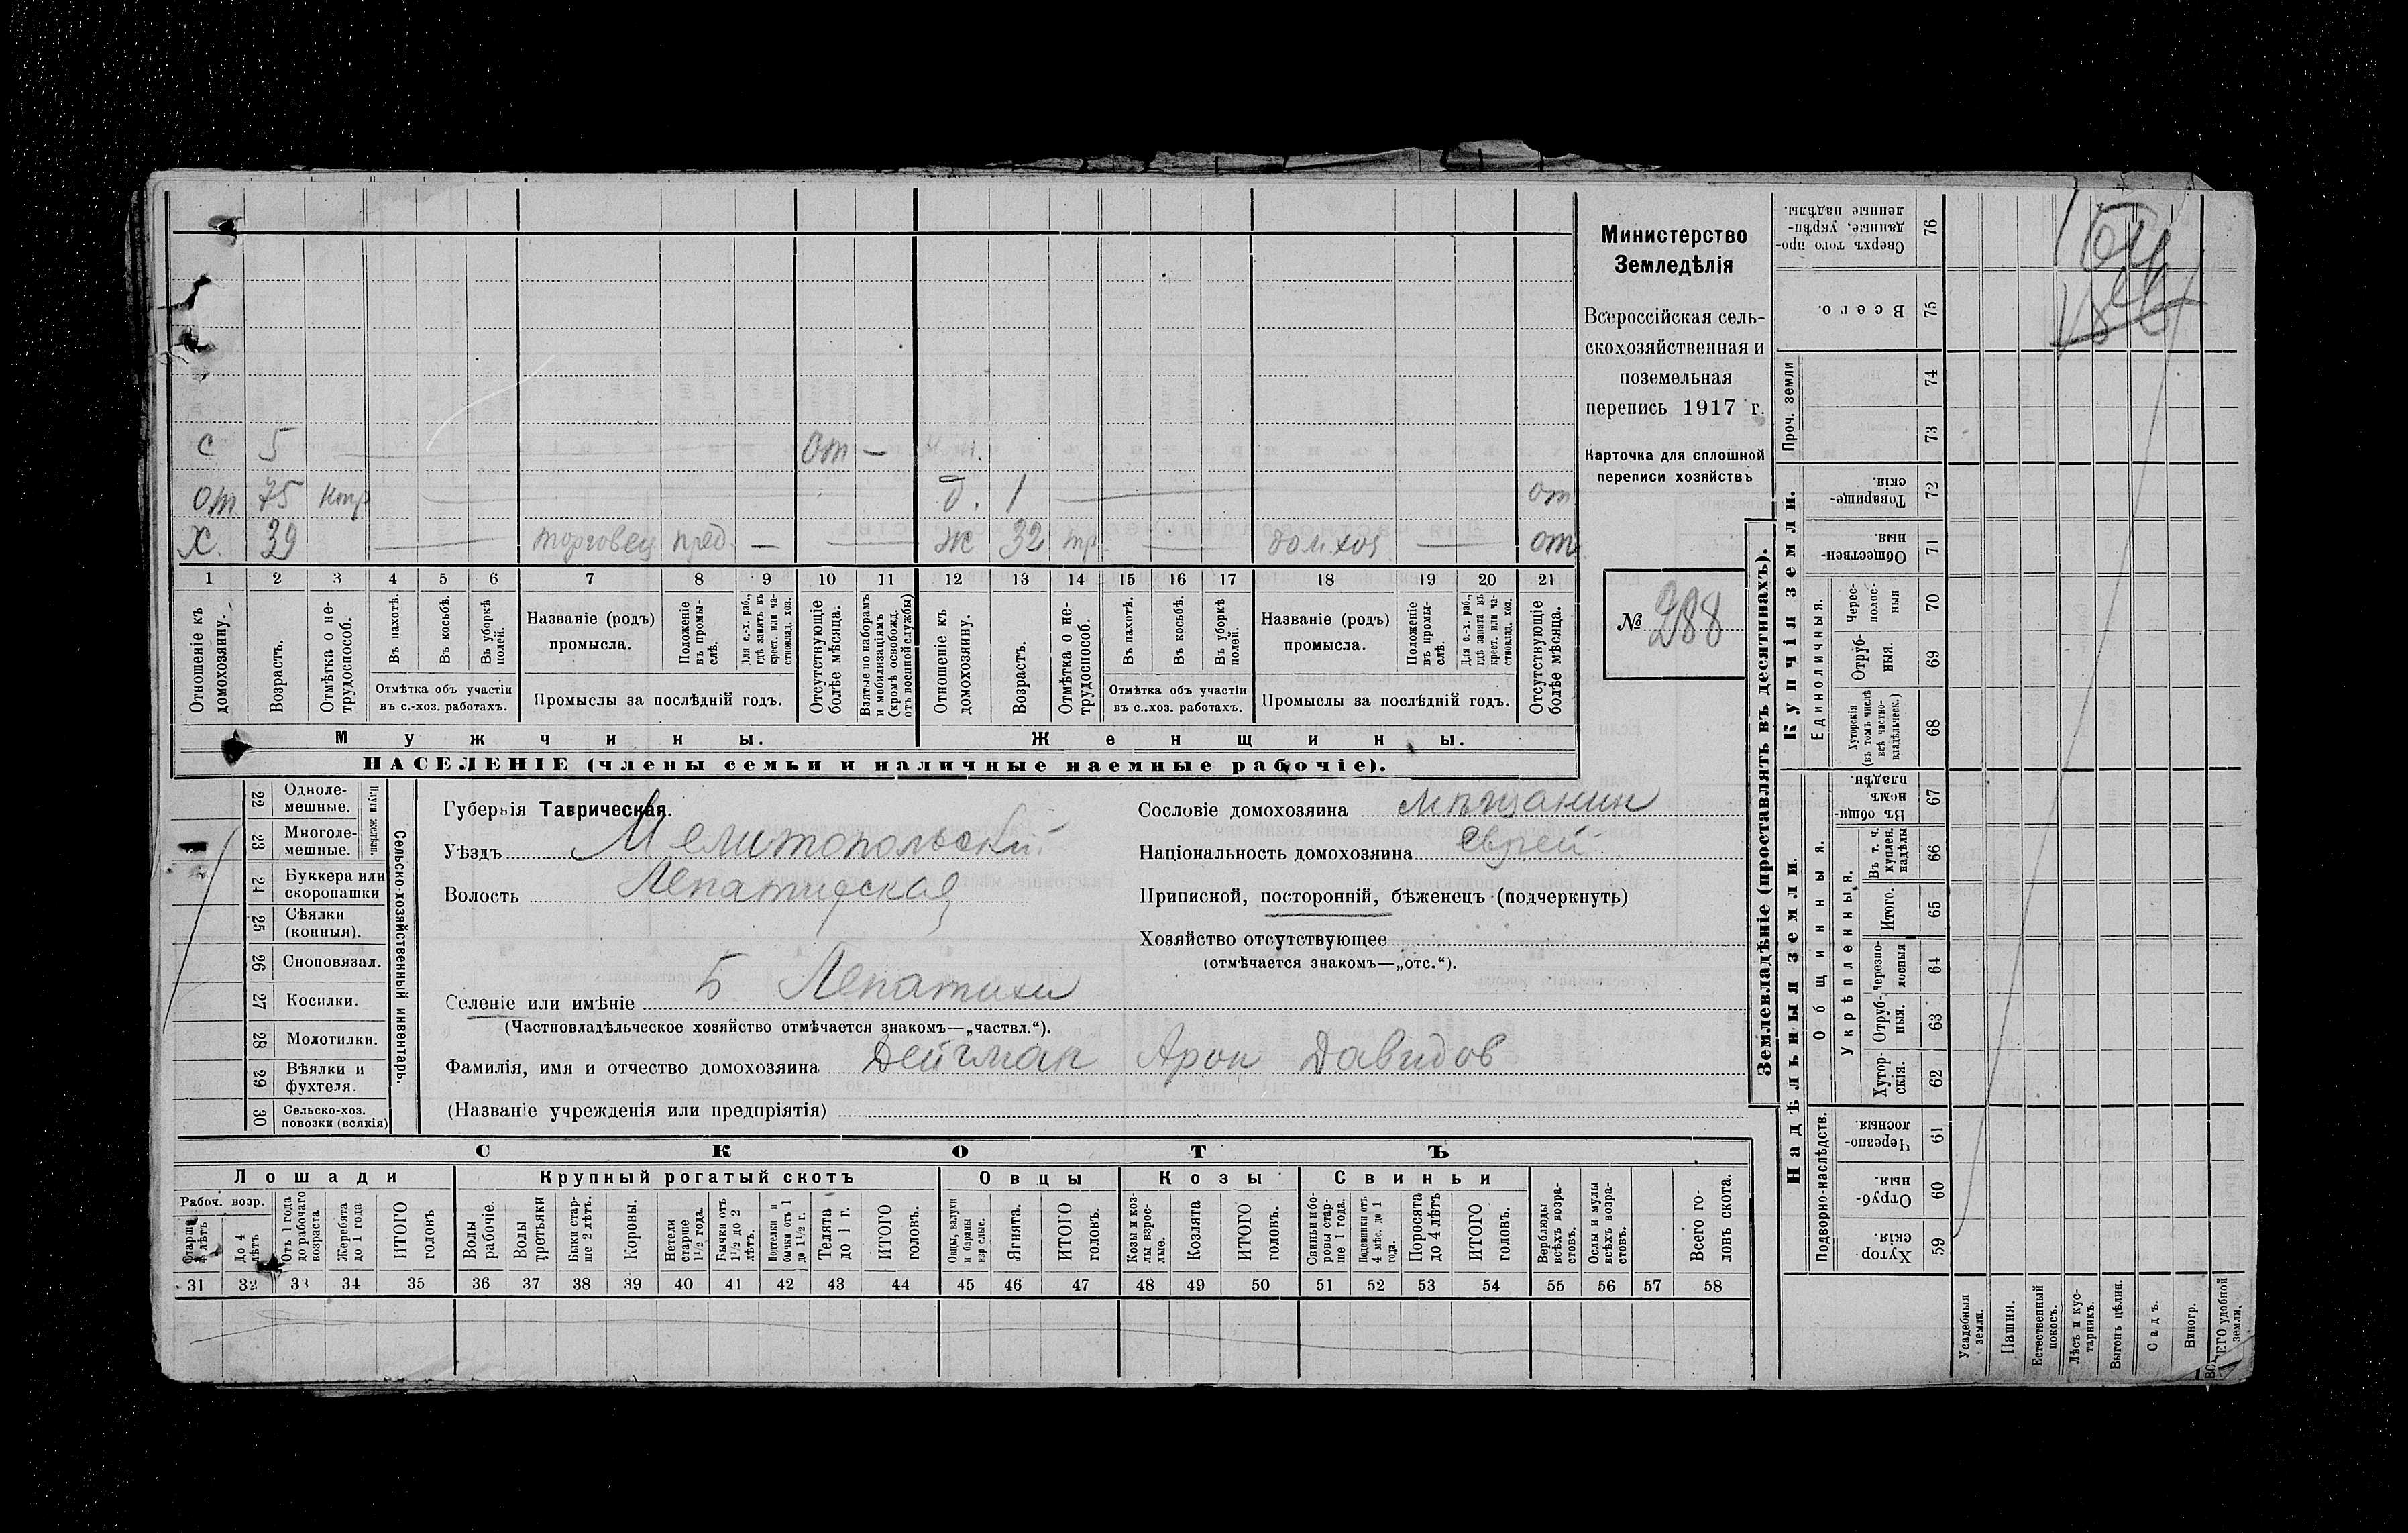 164
186
с 5 от —
от 75 нтр д. 1 от
х. 39 торговец пред. — ж 32 тр. дом. хоз от
1 2 3 4 5 6 7 8 9 10 11 12 13 14 15 16 17 18 19 20 21
Отношеніе къ домохозяину.
Возрастъ.
Отмѣтка о не-трудоспособ.
Въ пахотѣ.
Въ косьбѣ.
Въ уборкѣ полей.
Отмѣтка объ участіи въ с.-хоз. работахъ.
Названіе (родъ) промысла.
Положеніе въ промы-слѣ.
Для с.-х. раб., гдѣ занятъ въ крест. или ча-стновлад. хоз.
Промыслы за послѣдній годъ.
Отсутствующіе болѣе мѣсяца.
Взятые по наборамъ и мобилизаціямъ (кромѣ освобожд. отъ военной службы)
Отношеніе къ домохозяину.
Возрастъ.
Отмѣтка о не-трудоспособ.
Въ пахотѣ.
Въ косьбѣ.
Въ уборкѣ полей.
Отмѣтка объ участіи въ с.-хоз. работахъ.
Названіе (родъ) промысла.
Положеніе въ промы-слѣ.
Для с.-х. раб., гдѣ занята въ крест. или ча-стновлад. хоз.
Промыслы за послѣдній годъ.
Отсутствующіе болѣе мѣсяца.
Мужчины. Женщины.
НАСЕЛЕНІЕ (члены семьи и наличные наемные рабочіе).
Министерство
Земледѣлія
Всероссійская сель-
скохозяйственная и
поземельная
перепись 1917 г.
Карточка для сплошной
переписи хозяйствъ
№ 288
Сельско-хозяйственный инвентарь.
Плуги желѣзн.
22 Одноле-мешные.
23 Многоле-мешные.
24 Буккера или скоропашки
25 Сѣялки (конныя).
26 Сноповязал.
27 Косилки.
28 Молотилки.
29 Вѣялки и фухтеля.
30 Сельско-хоз. повозки (всякія)
Губернія Таврическая.
Уѣздъ Мелитопольский
Волость Лепатихская
Селеніе или имѣніе Б Лепатихи
(Частновладѣльческое хозяйство отмѣчается знакомъ—„частвл.“).
Фамилія, имя и отчество домохозяина Дейчман Арон Давидов
(Названіе учрежденія или предпріятія)
Сословіе домохозяина мѣщанин
Національность домохозяина еврей
Приписной, посторонній, бѣженецъ (подчеркнуть)
Хозяйство отсутствующее
(отмѣчается знакомъ—„отс.“).
СКОТЪ
Лошади Крупный рогатый скотъ Овцы Козы Свиньи
Рабоч. возр.
Старше 4 лѣтъ
До 4 лѣтъ
Отъ 1 года до рабочаго возраста
Жеребята до 1 года
ИТОГО головъ
Волы рабочіе.
Волы третьяки
Быки стар-ше 2 лѣтъ.
Коровы.
Нетели старше 1½ года.
Бычки отъ 1½ до 2 лѣтъ.
Подтелки и бычки отъ 1 до 1½ г.
Телята до 1 г.
ИТОГО головъ.
Овцы, валухи и бараны взрослые.
Ягнята.
ИТОГО головъ.
Козы и коз-лы взрос-лые.
Козлята
ИТОГО головъ.
Свиньи и бо-ровы стар-ше 1 года.
Подсвинки отъ 4 мѣс. до 1 года.
Поросята до 4 лѣтъ
ИТОГО головъ.
Верблюды всѣхъ возра-стовъ.
Ослы и мулы всѣхъ возра-стовъ.
Всего го-ловъ скота.
31 32 33 34 35 36 37 38 39 40 41 42 43 44 45 46 47 48 49 50 51 52 53 54 55 56 57 58
Землевладѣніе (проставлять въ десятинахъ).
Надѣльныя земли. Купчія земли.
Подворно-наслѣдств.
Общинныя.
Укрѣпленныя.
Единоличныя.
Проч. земли
Хутор-скія. 59
Отруб-ныя. 60
Черезпо-лосныя. 61
Хутор-скія. 62
Отруб-ныя. 63
Черезпо-лосныя 64
Итого. 65
Въ т. ч. куплен. надѣлы 66
Въ общин-номъ владѣн. 67
Хуторскія (въ томъ числѣ всѣ частно-владѣльческ.) 68
Отруб-ныя. 69
Черес-полос-ныя 70
Обществен-ныя. 71
Товарище-скія. 72
73
74
Всего. 75
Сверхъ того про-данные, укрѣп-ленные надѣлы. 76
Усадебныя земли.
Пашня.
Естественный покосъ.
Лѣсъ и кус-тарникъ.
Выгонъ цѣлин.
Садъ.
Виногр.
ВСЕГО удобной земли.